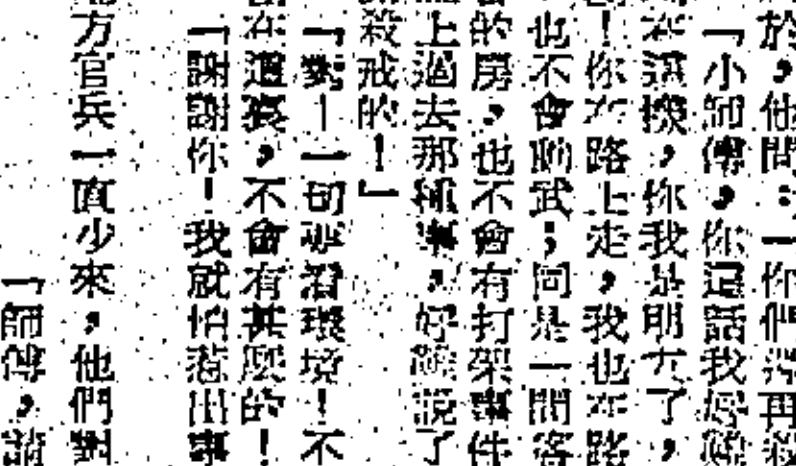 於，他問：「你們再殺
「小師傅，你這話我好
在這換，你我是朋友了，
！你在路上走，我也在路
也不會動武；同是一間客
的房，也不會有打架事件
上過去那種事，好說了
殺戒的！」
「對！一切看環境！不
在這裏，不會有甚麼的！
「謝謝你！我就怕惹出事
方官兵一直少來，他們對
「師傅，請